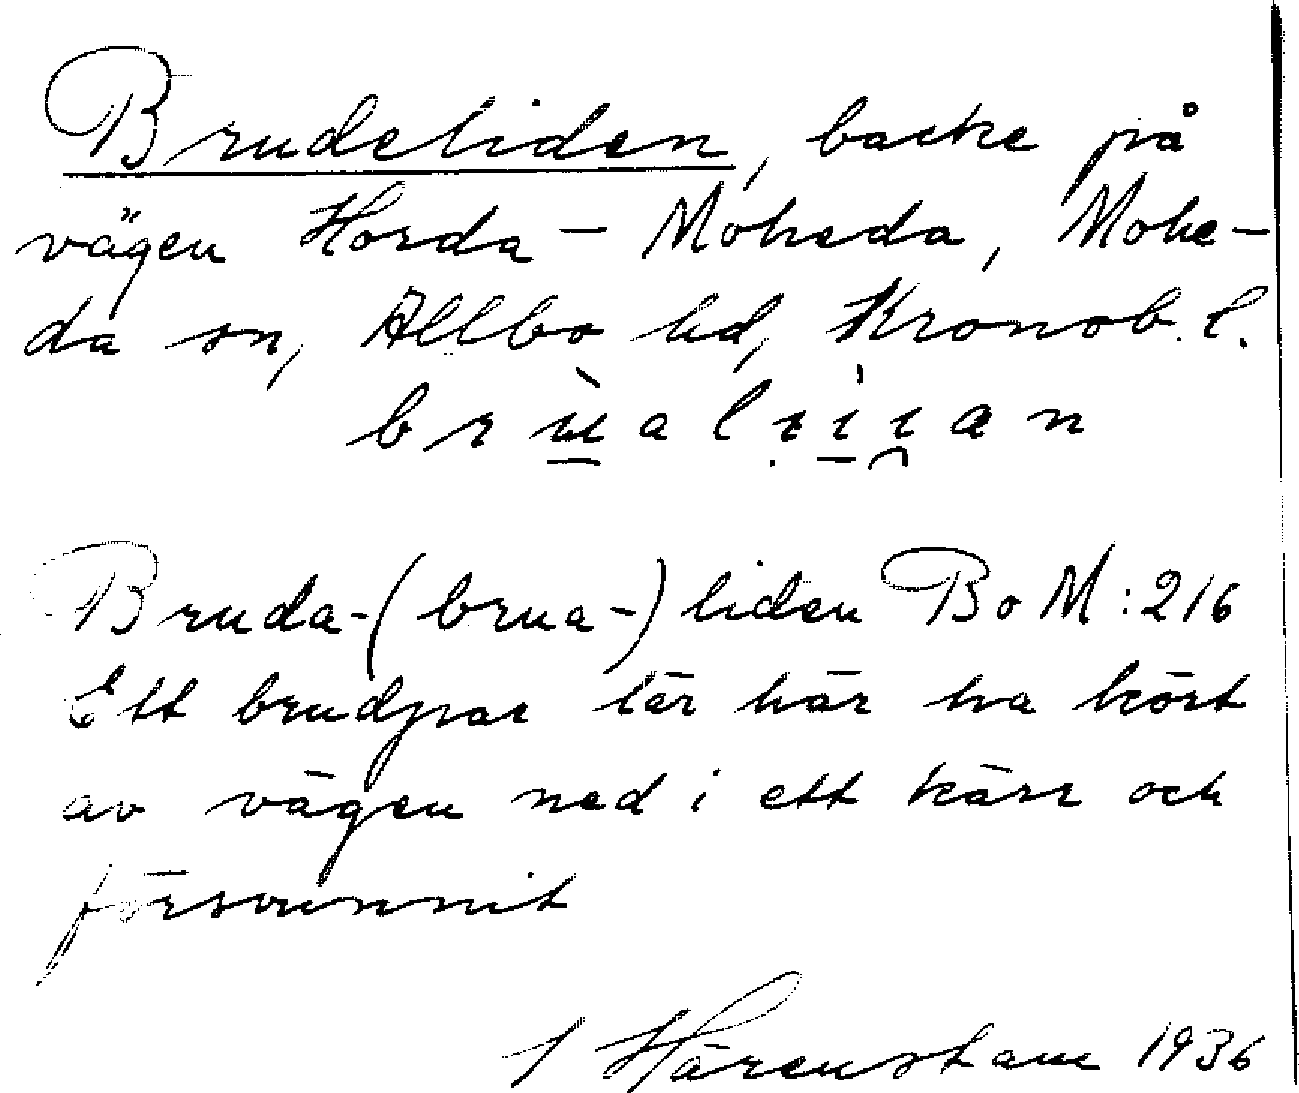 Brudeliden, backe på
vägen Horda - Moheda, Mohe-
da sn, Allbo hd, Kronob. l.
Bruda-(brua-) liden BoM:216
Ett brudpar lär här ha kört
av vägen ned i ett kärr och
försvunnit
Härenstam 1936